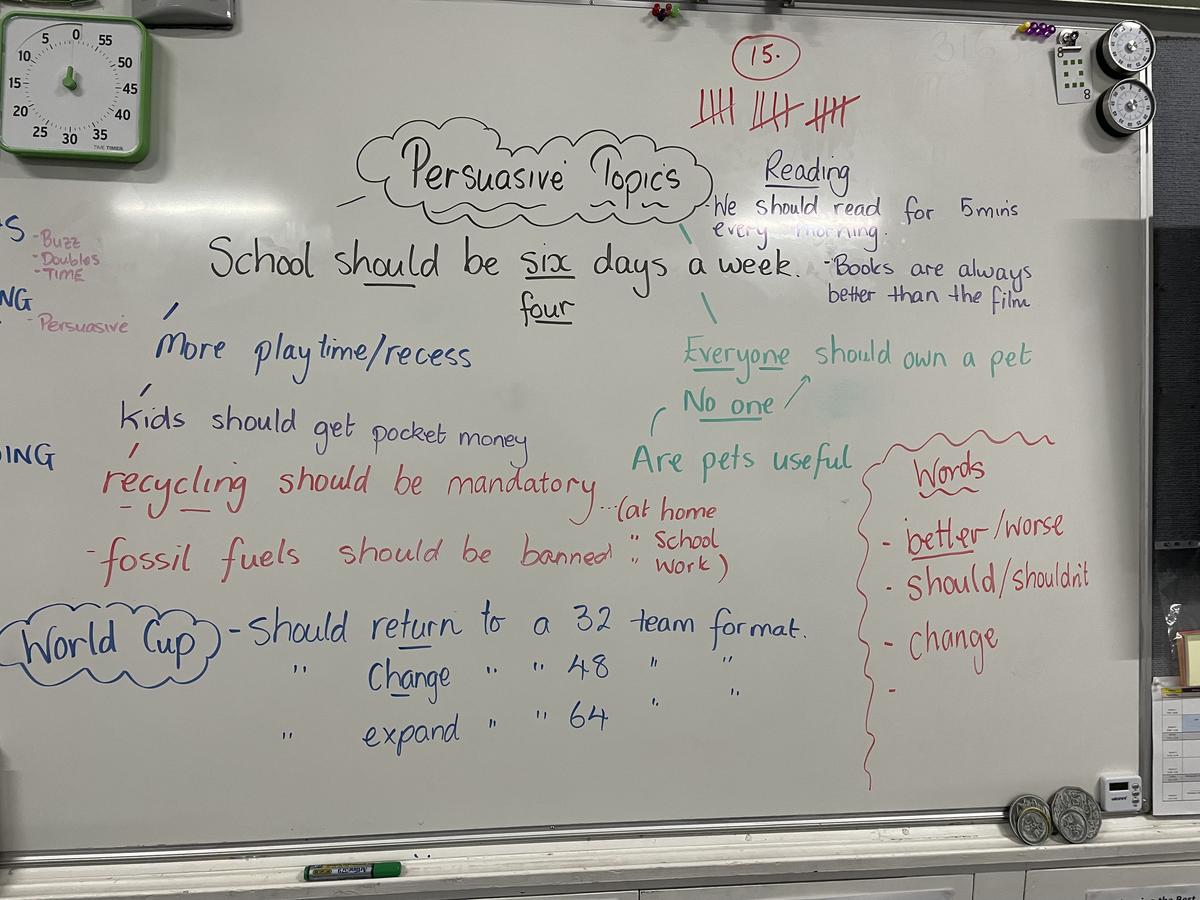 0
5
55
10
50
15
45
20
40
25
35
30
TIME TIMER
15.
8
8
Persuasive Topics
Reading
-We should read for 5mins
every morning.
-Books are always
better than the film
S
-Buzz
-Doubles
-TIME
NG
- Persuasive
ING
School should be six days a week.
four
More playtime/recess
Kids should get pocket money
recycling should be mandatory...(at home
" School
" work)
-fossil fuels should be banned
Everyone should own a pet
No one
Are pets useful
Words
- better/worse
- should/shouldn't
- change
-
World Cup - Should return to a 32 team format.
" Change " " 48 " "
" expand " " 64 " "